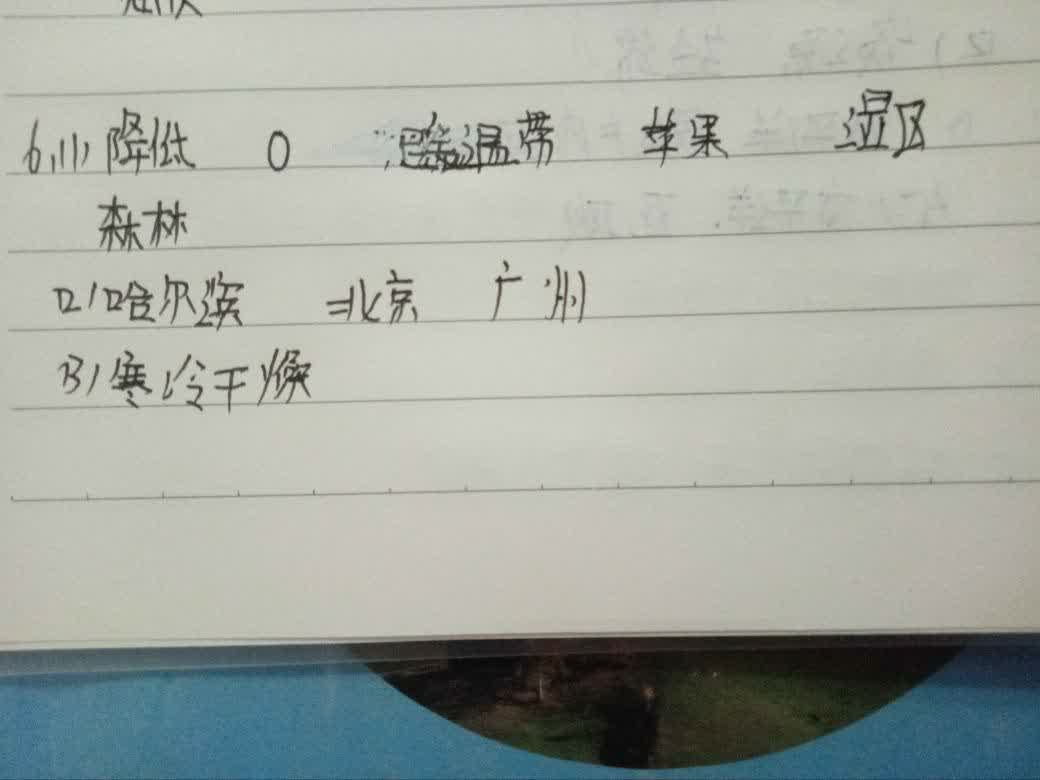 6.(1)降低 0 暖温带 苹果 湿区
森林
(2)哈尔滨 北京 广州
(3)寒冷干燥